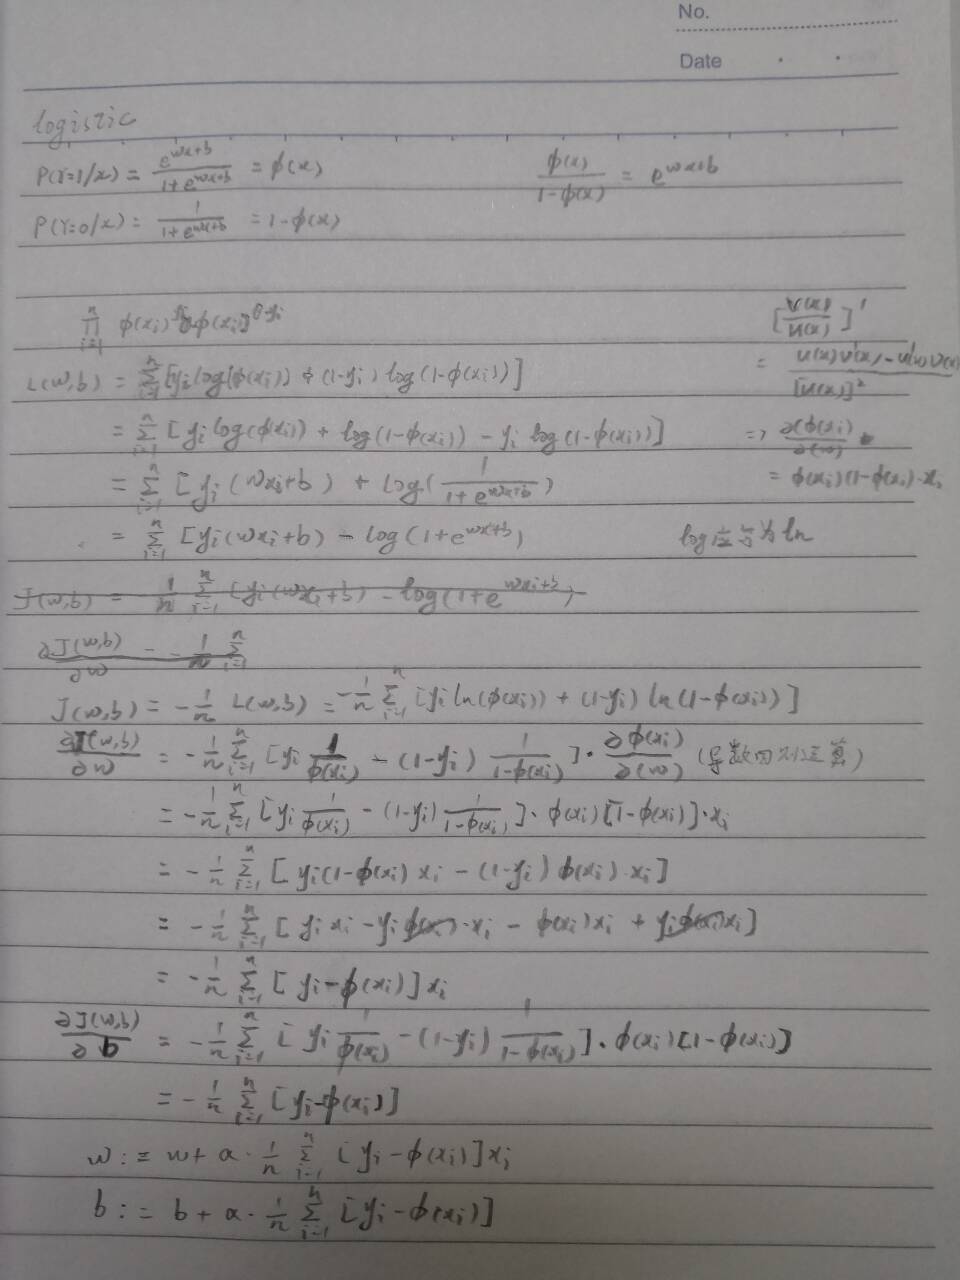 No.
Date
logistic
P(Y=1/x) = \frac{e^{wx+b}}{1+e^{wx+b}} = φ(x)    \frac{φ(x)}{1-φ(x)} = e^{wx+b}
P(Y=0/x) = \frac{1}{1+e^{wx+b}} = 1-φ(x)
\prod_{i=1}^{n} φ(x_i) φ(x_i)]    [\frac{v(x)}{u(x)}]'
L(w,b) = \sum_{i=1}^{n} [y_i log(φ(x_i)) + (1-y_i) log(1-φ(x_i))]    = \frac{u(x)v'(x) - u'(x)v(x)}{[u(x)]^2}
= \sum_{i=1}^{n} [y_i log(φ(x_i)) + log(1-φ(x_i)) - y_i log(1-φ(x_i))]    => \frac{∂(φ(x_i))}{∂(w)}
= \sum_{i=1}^{n} [y_i(wx_i+b) + log(\frac{1}{1+e^{wx_i+b}})    = φ(x_i)(1-φ(x_i)·x_i
= \sum_{i=1}^{n} [y_i(wx_i+b) - log(1+e^{wx+b})    log 为 ln
J(w,b) = \frac{1}{n} \sum_{i=1}^{n} [y_i(wx_i+b) - log(1+e^{wx_i+b})
\frac{∂J(w,b)}{∂w} = -\frac{1}{n} \sum_{i=1}^{n}
J(w,b) = -\frac{1}{n} L(w,b) = -\frac{1}{n} \sum_{i=1}^{n} [y_i ln(φ(x_i)) + (1-y_i) ln(1-φ(x_i))]
\frac{∂J(w,b)}{∂w} = -\frac{1}{n} \sum_{i=1}^{n} [y_i \frac{1}{φ(x_i)} - (1-y_i) \frac{1}{1-φ(x_i)}]·\frac{∂φ(x_i)}{∂(w)} (导数四则运算)
= -\frac{1}{n} \sum_{i=1}^{n} [y_i \frac{1}{φ(x_i)} - (1-y_i) \frac{1}{1-φ(x_i)}]·φ(x_i)[1-φ(x_i)]·x_i
= -\frac{1}{n} \sum_{i=1}^{n} [y_i(1-φ(x_i) x_i - (1-y_i) φ(x_i)·x_i]
= -\frac{1}{n} \sum_{i=1}^{n} [y_i x_i - y_i φ(x_i)·x_i - φ(x_i)x_i + y_i φ(x_i)x_i]
= -\frac{1}{n} \sum_{i=1}^{n} [y_i-φ(x_i)]x_i
\frac{∂J(w,b)}{∂b} = -\frac{1}{n} \sum_{i=1}^{n} [y_i \frac{1}{φ(x_i)} - (1-y_i) \frac{1}{1-φ(x_i)}]·φ(x_i)[1-φ(x_i)]
= -\frac{1}{n} \sum_{i=1}^{n} [y_i-φ(x_i)]
w := w + α·\frac{1}{n} \sum_{i=1}^{n} [y_i-φ(x_i)]x_i
b := b + α·\frac{1}{n} \sum_{i=1}^{n} [y_i-φ(x_i)]